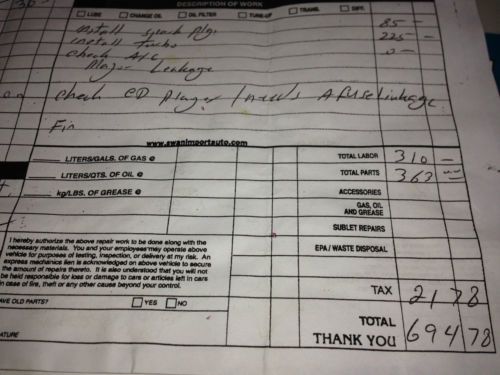 DESCRIPTION OF WORK
LUBE CHANGE OIL OIL FILTER TUNE-UP TRANS. DIFF.
Install Plgs 85 —
install Turbo 225 —
check A/C 0 —
Major Leakage
check CD Player / needs A fuse linkage
www.swanimportauto.com
LITERS/GALS. OF GAS @ TOTAL LABOR 310 —
LITERS/QTS. OF OIL @ TOTAL PARTS 363 —
kg/LBS. OF GREASE @ ACCESSORIES
GAS, OIL
AND GREASE
SUBLET REPAIRS
EPA / WASTE DISPOSAL
I hereby authorize the above repair work to be done along with the
necessary materials. You and your employees may operate above
vehicle for purposes of testing, inspection, or delivery at my risk. An
express mechanics lien is acknowledged on above vehicle to secure
the amount of repairs thereto. It is also understood that you will not
be held responsible for loss or damage to cars or articles left in cars
in case of fire, theft or any other cause beyond your control.
TAX 21 78
AVE OLD PARTS? YES NO
TOTAL
THANK YOU 694 78
ATURE